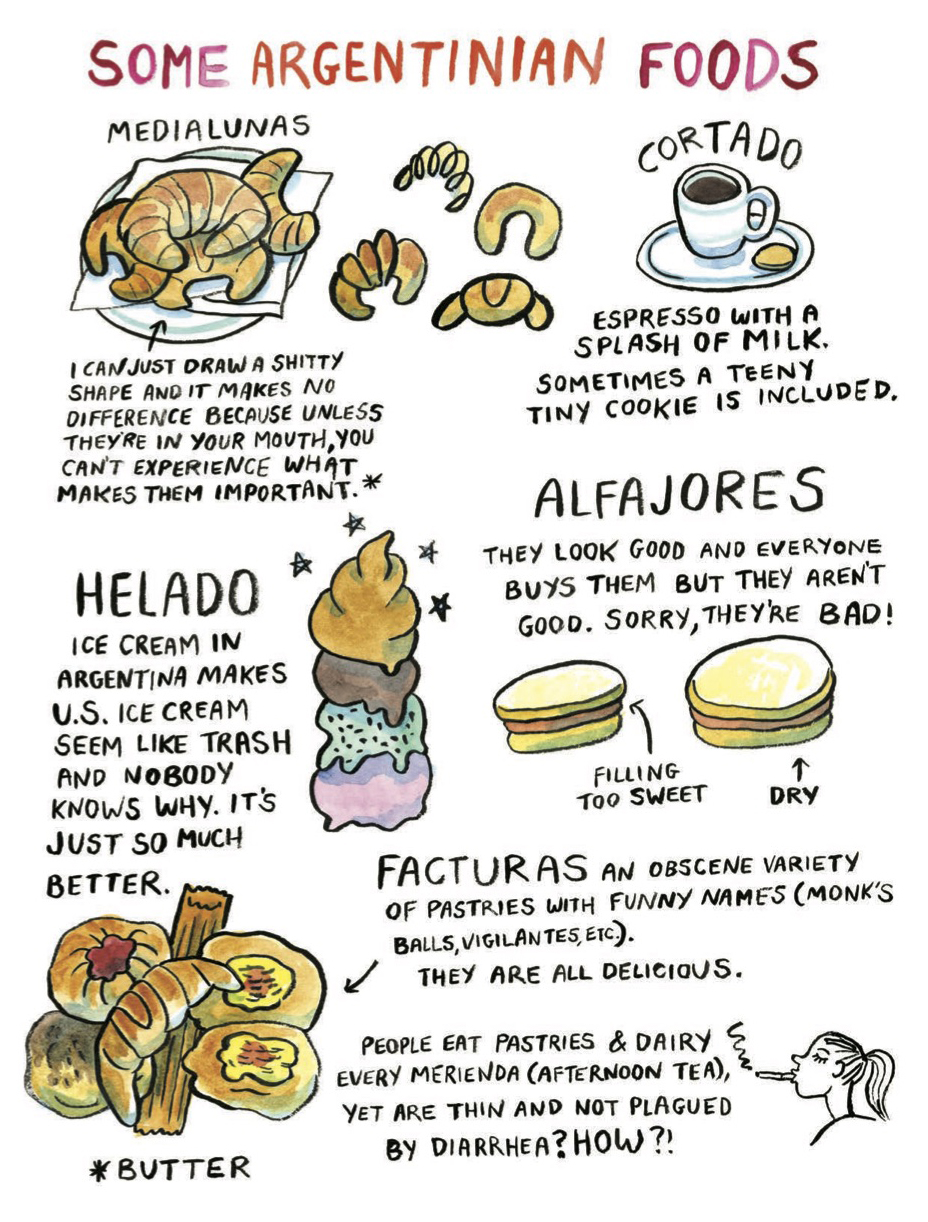 SOME ARGENTINIAN FOODS
MEDIALUNAS
I CAN JUST DRAW A SHITTY
SHAPE AND IT MAKES NO
DIFFERENCE BECAUSE UNLESS
THEY'RE IN YOUR MOUTH, YOU
CAN'T EXPERIENCE WHAT
MAKES THEM IMPORTANT.*
CORTADO
ESPRESSO WITH A
SPLASH OF MILK.
SOMETIMES A TEENY
TINY COOKIE IS INCLUDED.
ALFAJORES
THEY LOOK GOOD AND EVERYONE
BUYS THEM BUT THEY AREN'T
GOOD. SORRY, THEY'RE BAD!
FILLING
TOO SWEET
DRY
HELADO
ICE CREAM IN
ARGENTINA MAKES
U.S. ICE CREAM
SEEM LIKE TRASH
AND NOBODY
KNOWS WHY. IT'S
JUST SO MUCH
BETTER.
FACTURAS AN OBSCENE VARIETY
OF PASTRIES WITH FUNNY NAMES (MONK'S
BALLS, VIGILANTES, ETC.).
THEY ARE ALL DELICIOUS.
PEOPLE EAT PASTRIES & DAIRY
EVERY MERIENDA (AFTERNOON TEA),
YET ARE THIN AND NOT PLAGUED
BY DIARRHEA? HOW?!
*BUTTER